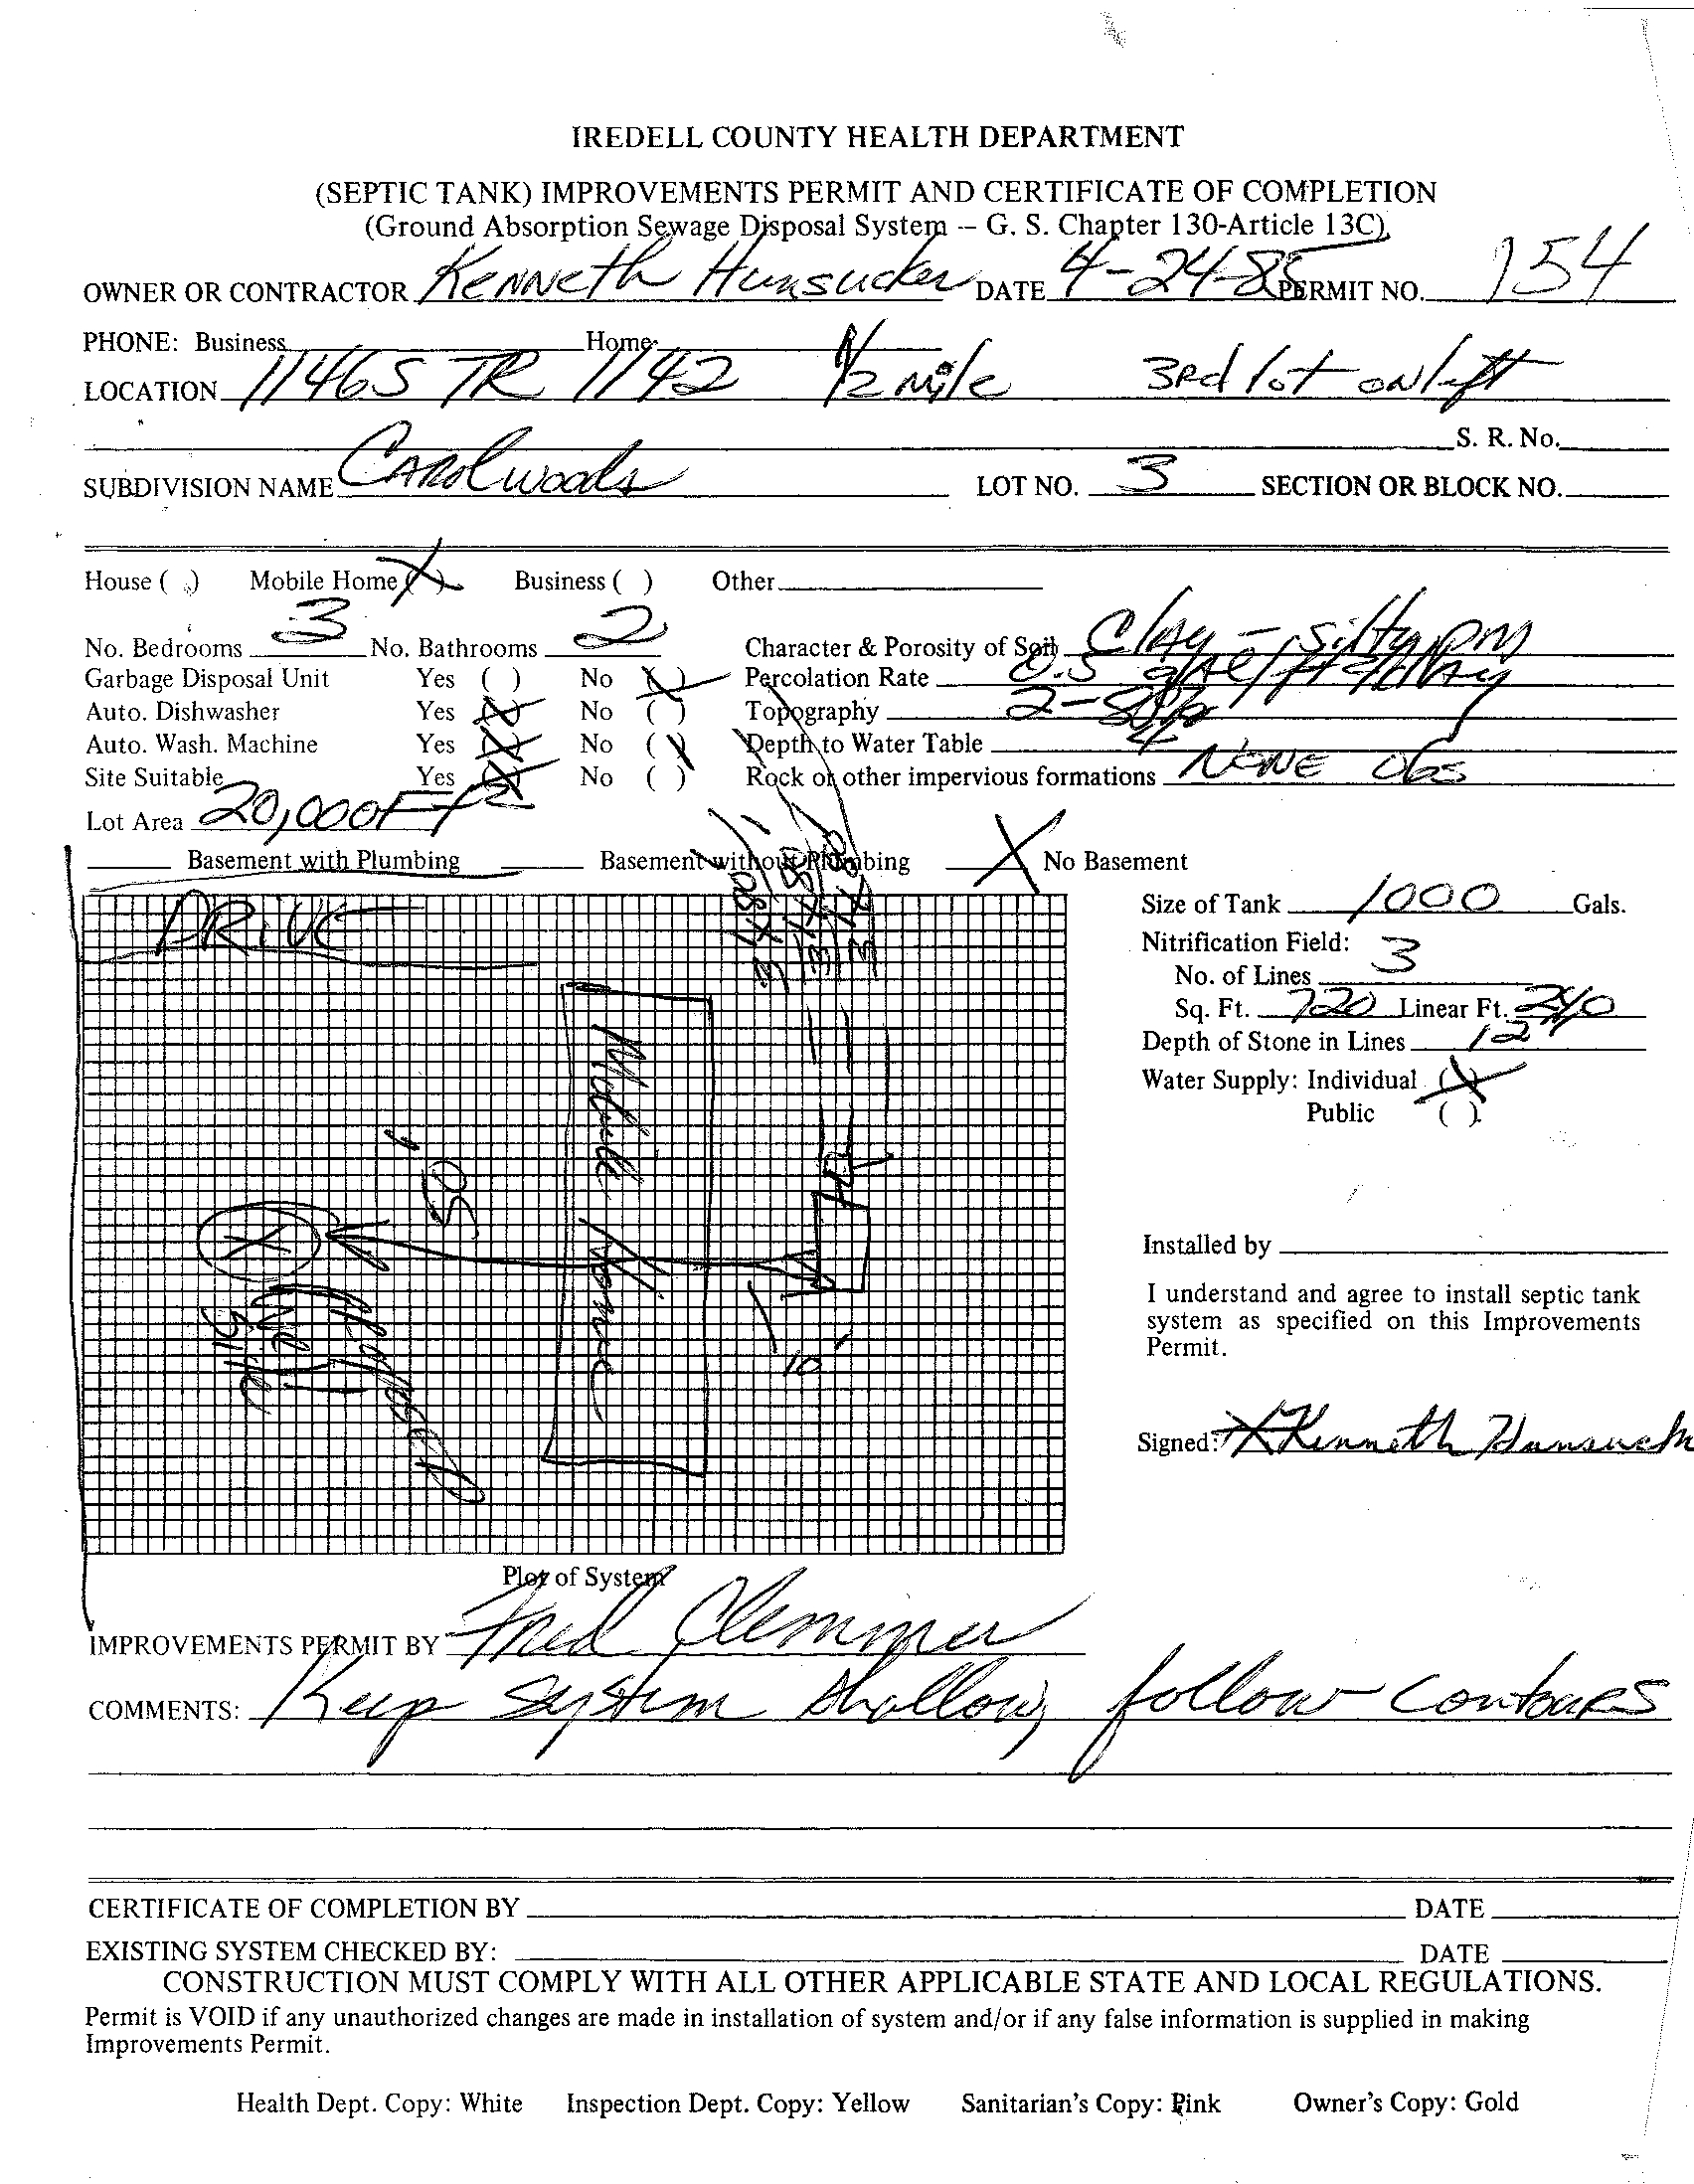 IREDELL COUNTY HEALTH DEPARTMENT
(SEPTIC TANK) IMPROVEMENTS PERMIT AND CERTIFICATE OF COMPLETION
(Ground Absorption Sewage Disposal System -- G. S. Chapter 130-Article 13C)
OWNER OR CONTRACTOR Kenneth Hunsucker DATE 4-24-85 PERMIT NO. 154
PHONE: Business Home
LOCATION 1146S TR 1142 1/2 mile 3rd lot on left
S. R. No.
SUBDIVISION NAME Carolwoods LOT NO. 3 SECTION OR BLOCK NO.
House ( ) Mobile Home (X) Business ( ) Other
No. Bedrooms 3 No. Bathrooms 2 Character & Porosity of Soil Clay - silty
Garbage Disposal Unit Yes ( ) No (X) Percolation Rate 0.5 gal/ft2/day
Auto. Dishwasher Yes (X) No ( ) Topography 2-
Auto. Wash. Machine Yes (X) No ( ) Depth to Water Table
Site Suitable Yes (X) No ( ) Rock or other impervious formations None obs
Lot Area 20,000 Ft2
Basement with Plumbing Basement without Plumbing X No Basement
DRIVE
Mobile Home
50'
X
Proposed
Well
Site
10'
Size of Tank 1000 Gals.
Nitrification Field:
No. of Lines 3
Sq. Ft. 720 Linear Ft. 240
Depth of Stone in Lines 12"
Water Supply: Individual (X)
Public ( )
Installed by
I understand and agree to install septic tank
system as specified on this Improvements
Permit.
Signed: X Kenneth Hunsuck
Plot of System
IMPROVEMENTS PERMIT BY Fred Clemmer
COMMENTS: Keep system shallow, follow contours
CERTIFICATE OF COMPLETION BY DATE
EXISTING SYSTEM CHECKED BY: DATE
CONSTRUCTION MUST COMPLY WITH ALL OTHER APPLICABLE STATE AND LOCAL REGULATIONS.
Permit is VOID if any unauthorized changes are made in installation of system and/or if any false information is supplied in making
Improvements Permit.
Health Dept. Copy: White Inspection Dept. Copy: Yellow Sanitarian's Copy: Pink Owner's Copy: Gold